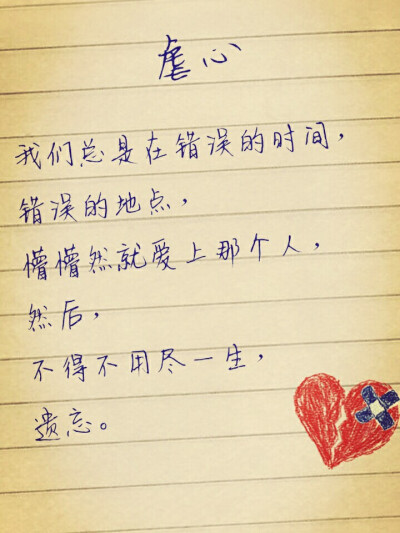 虐心
我们总是在错误的时间，
错误的地点，
懵懵然就爱上那个人，
然后，
不得不用尽一生，
遗忘。